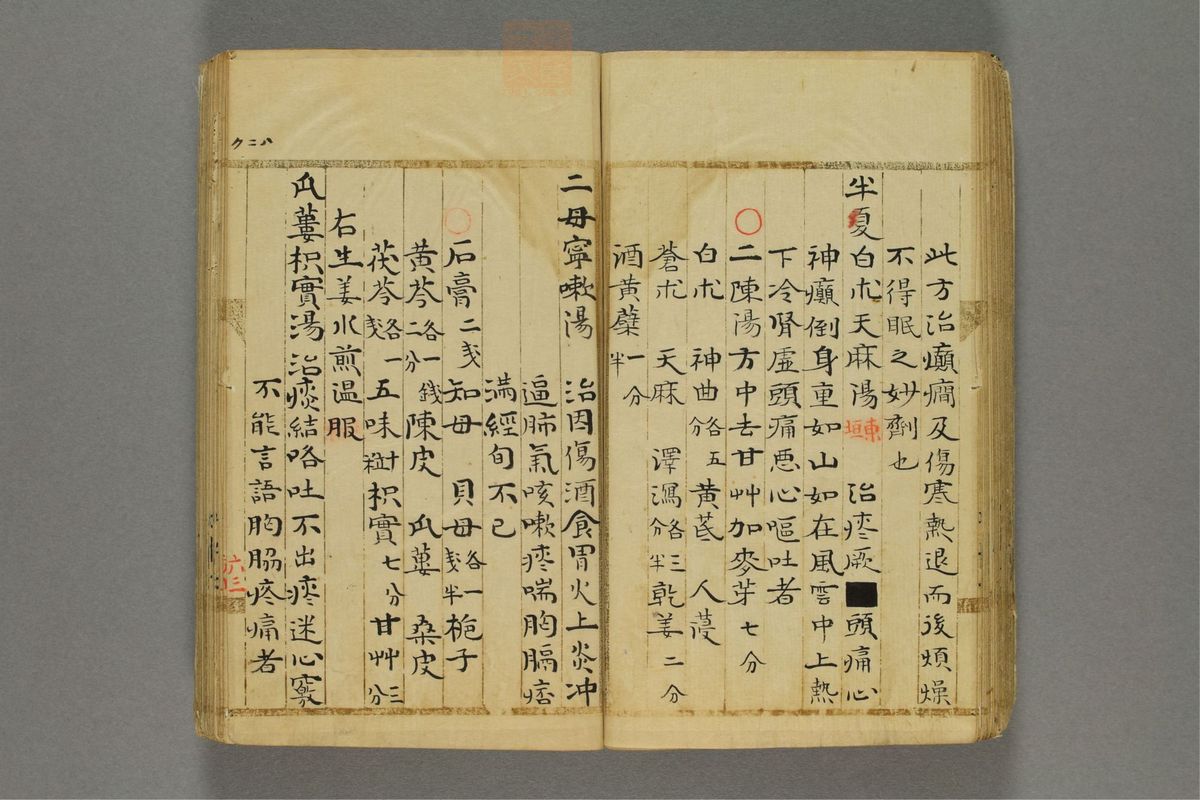 此方治癲癇及傷寒熱退而後煩燥
不得眠之妙劑也
半夏白朮天麻湯 東垣 治痰厥頭痛心
神癲倒身重如山如在風雲中上熱
下冷腎虛頭痛悪心嘔吐者
〇二陳湯方中去甘艸加麥芽七分
白朮 神曲各五分 黄芪 人蓡
蒼朮 天麻 澤瀉各三分半 乾姜二分
酒黄蘗一分半
二母寧嗽湯 治因傷酒食胃火上炎冲
逼肺氣咳嗽痰喘胸膈痞
満經旬不已
〇石膏二戔 知母 貝母各一戔半 梔子
黄芩各一錢二分 陳皮 瓜蔞 桑皮
茯苓各一戔 五味十粒 枳實七分 甘艸三分
右生姜水煎温服
瓜蔞枳實湯 治痰結咯吐不出痰迷心竅
不能言語胸脇疼痛者
八二ク
六三